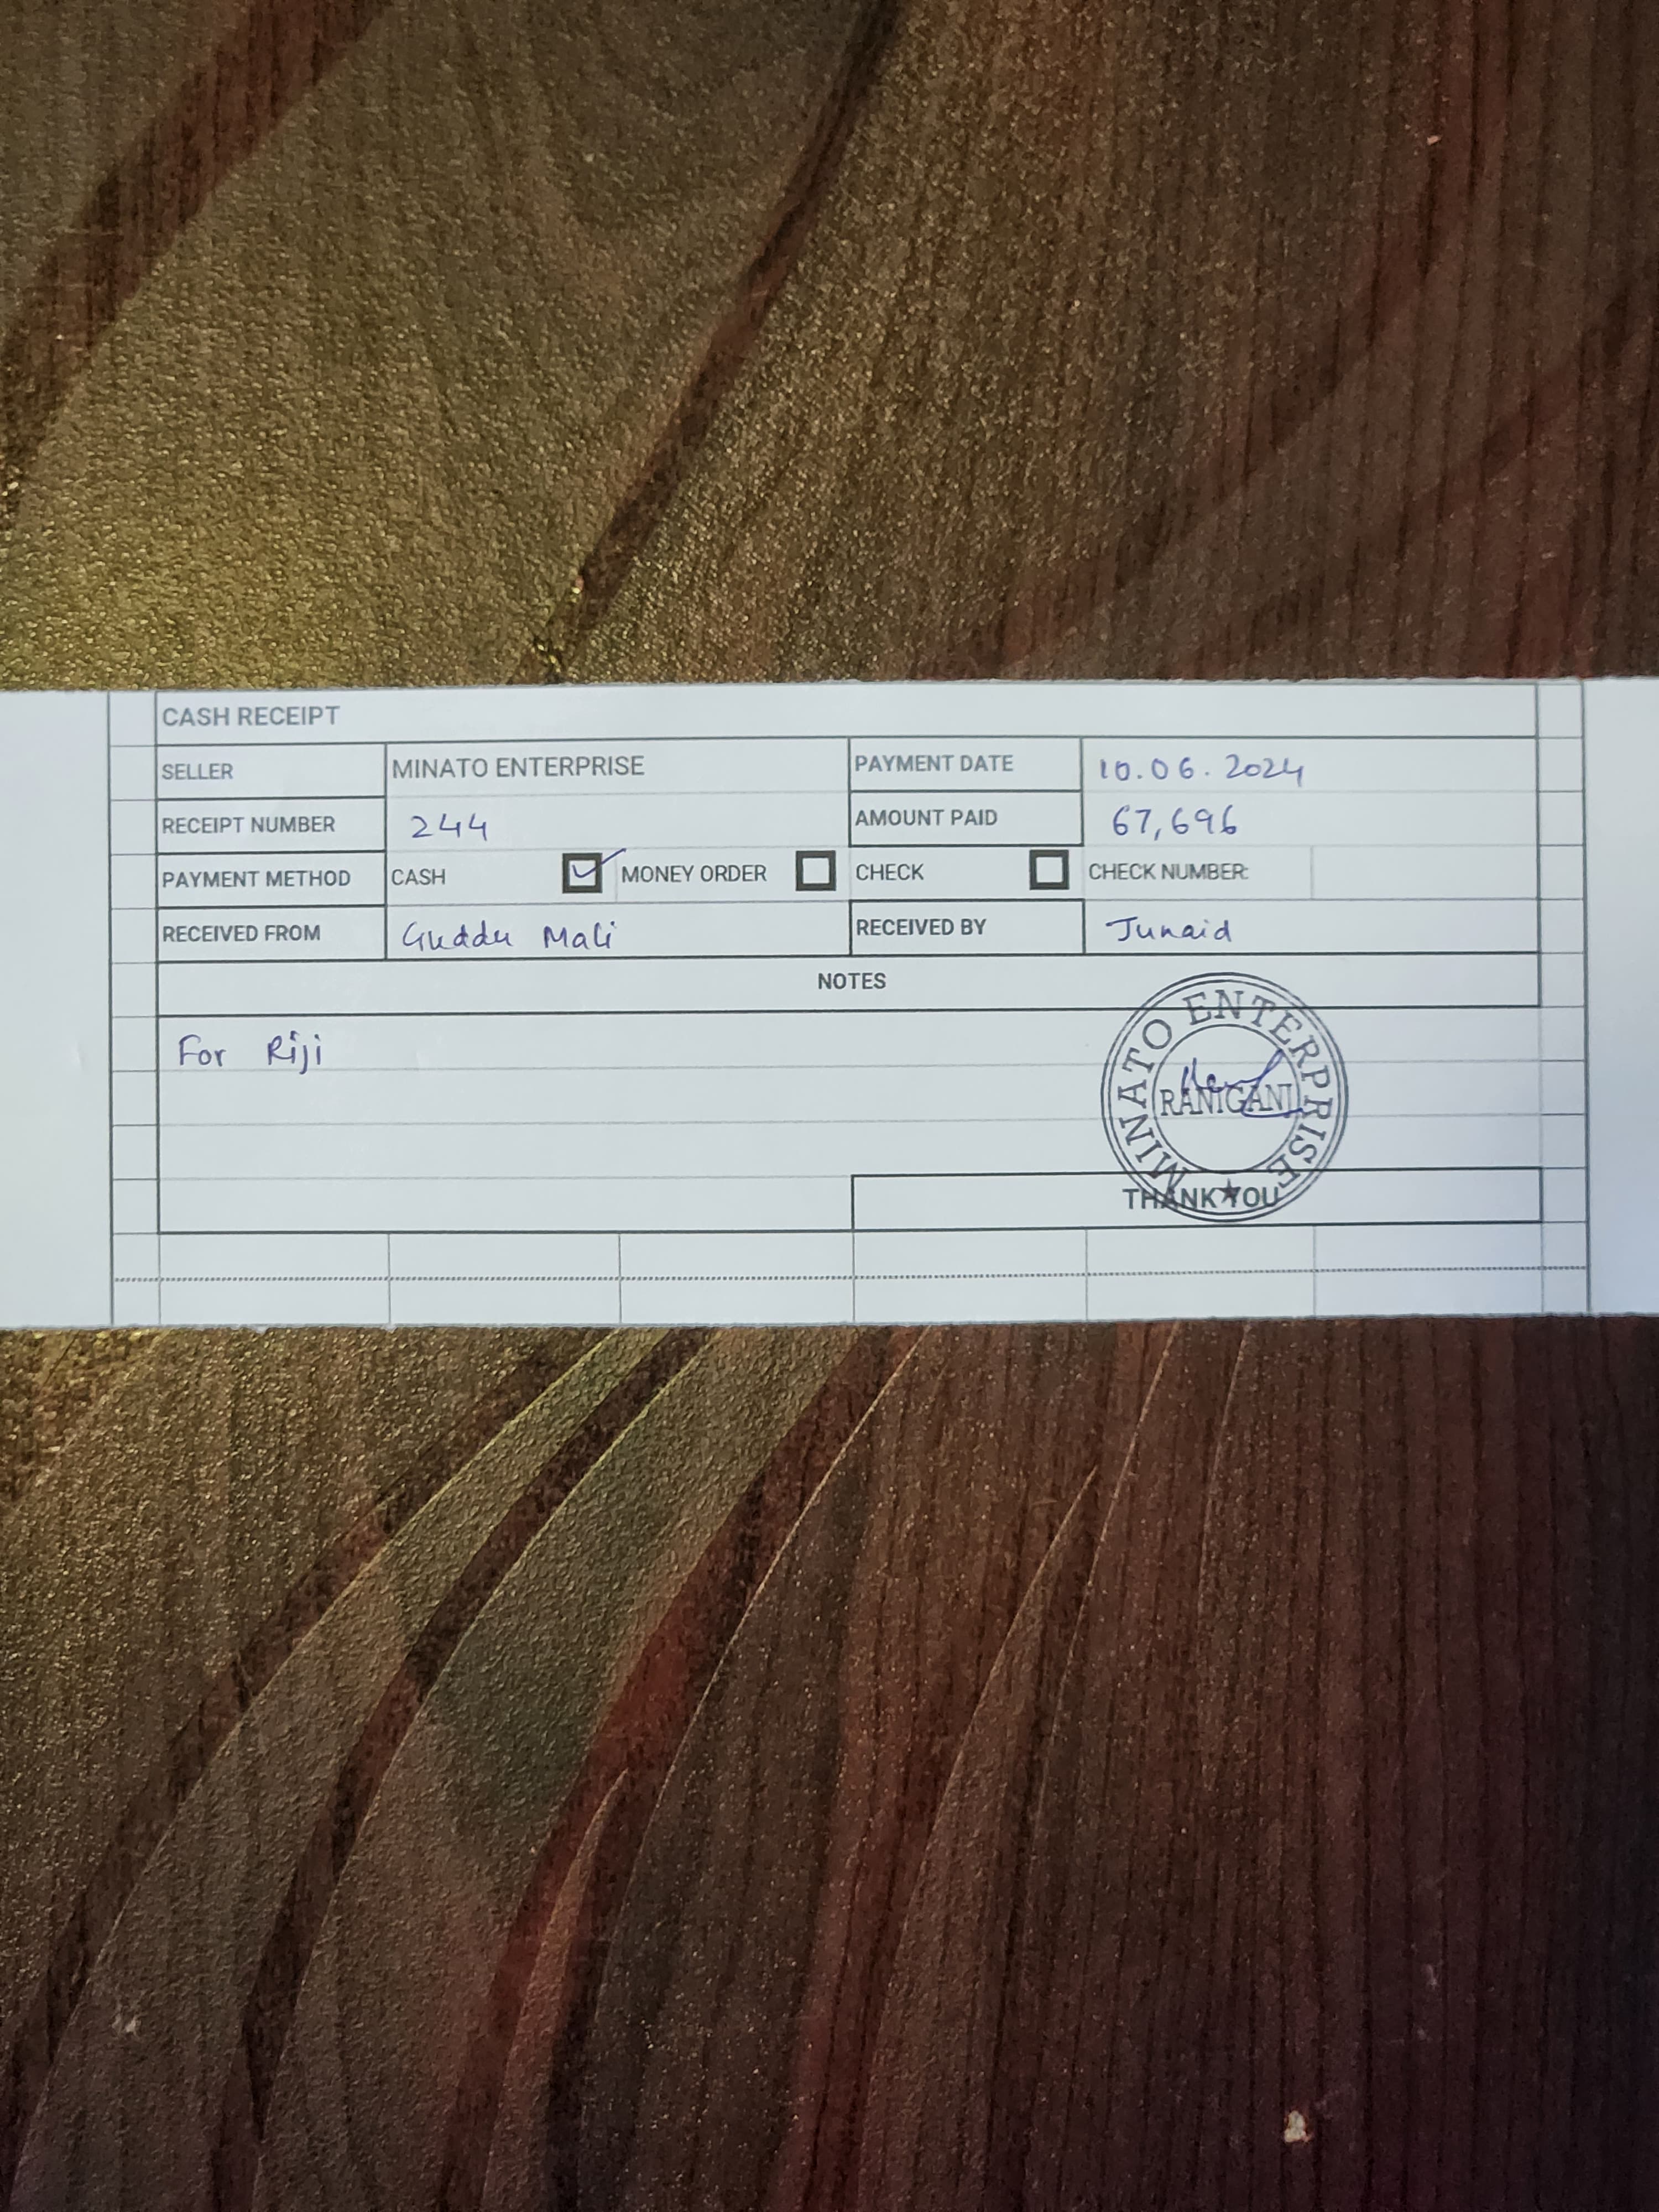 CASH RECEIPT
SELLER MINATO ENTERPRISE PAYMENT DATE 10.06.2024
RECEIPT NUMBER 244 AMOUNT PAID 67,696
PAYMENT METHOD CASH MONEY ORDER CHECK CHECK NUMBER:
RECEIVED FROM Guddu Mali RECEIVED BY Junaid
NOTES
For Riji
MINATO ENTERPRISE
RANIGANJ
THANK YOU